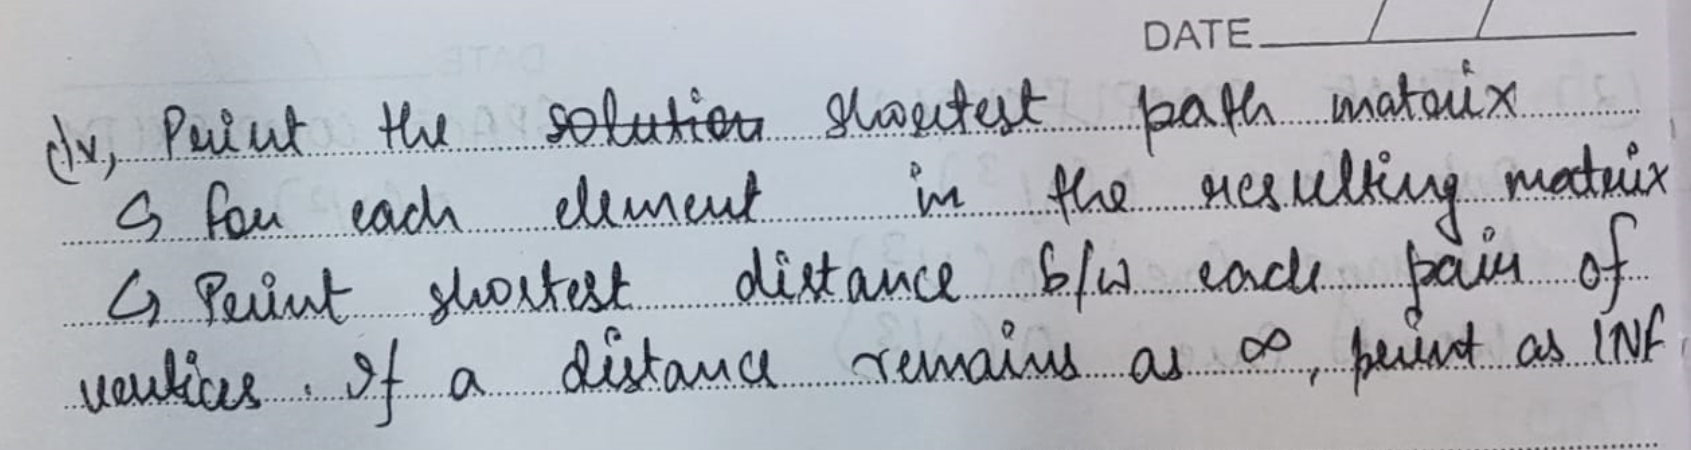 DATE / /
iv, Print the solution shortest path matrix
↳ for each element in the resulting matrix
↳ Print shortest distance b/w each pair of
vertices. If a distance remains as ∞, print as INF